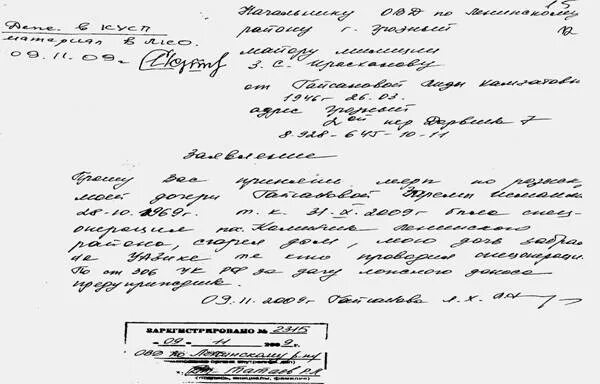 Деж. в КУСП
материал в ЛКО.
09.11.09г.
Начальнику ОВД по Ленинскому
району г. Грозный
майору милиции
З. С.
от Гайсановой Лиды Хамзатовны
1946г 26.03.
адрес Грозный
2ой пер Дарвина 7
8-928-645-10-11
Заявление
Прошу Вас принять меры по розыску
моей дочери Гайсановой Зареми
28-10. 1969г. т.к. 31-X-2009г была спец-
операция по Ленинского
района, сгорел дом, мою дочь забрали
на УАЗике те кто проводил спецоперацию.
По ст 306 УК РФ за дачу ложного доноса
предупрежден.
09.11.2009г Гайсанова Л.Х.
ЗАРЕГИСТРИРОВАНО № 2315
"09" 11 2009г.
ОВД по Ленинскому р-ну
Татаев Р.Я
(подпись, инициалы, фамилия)